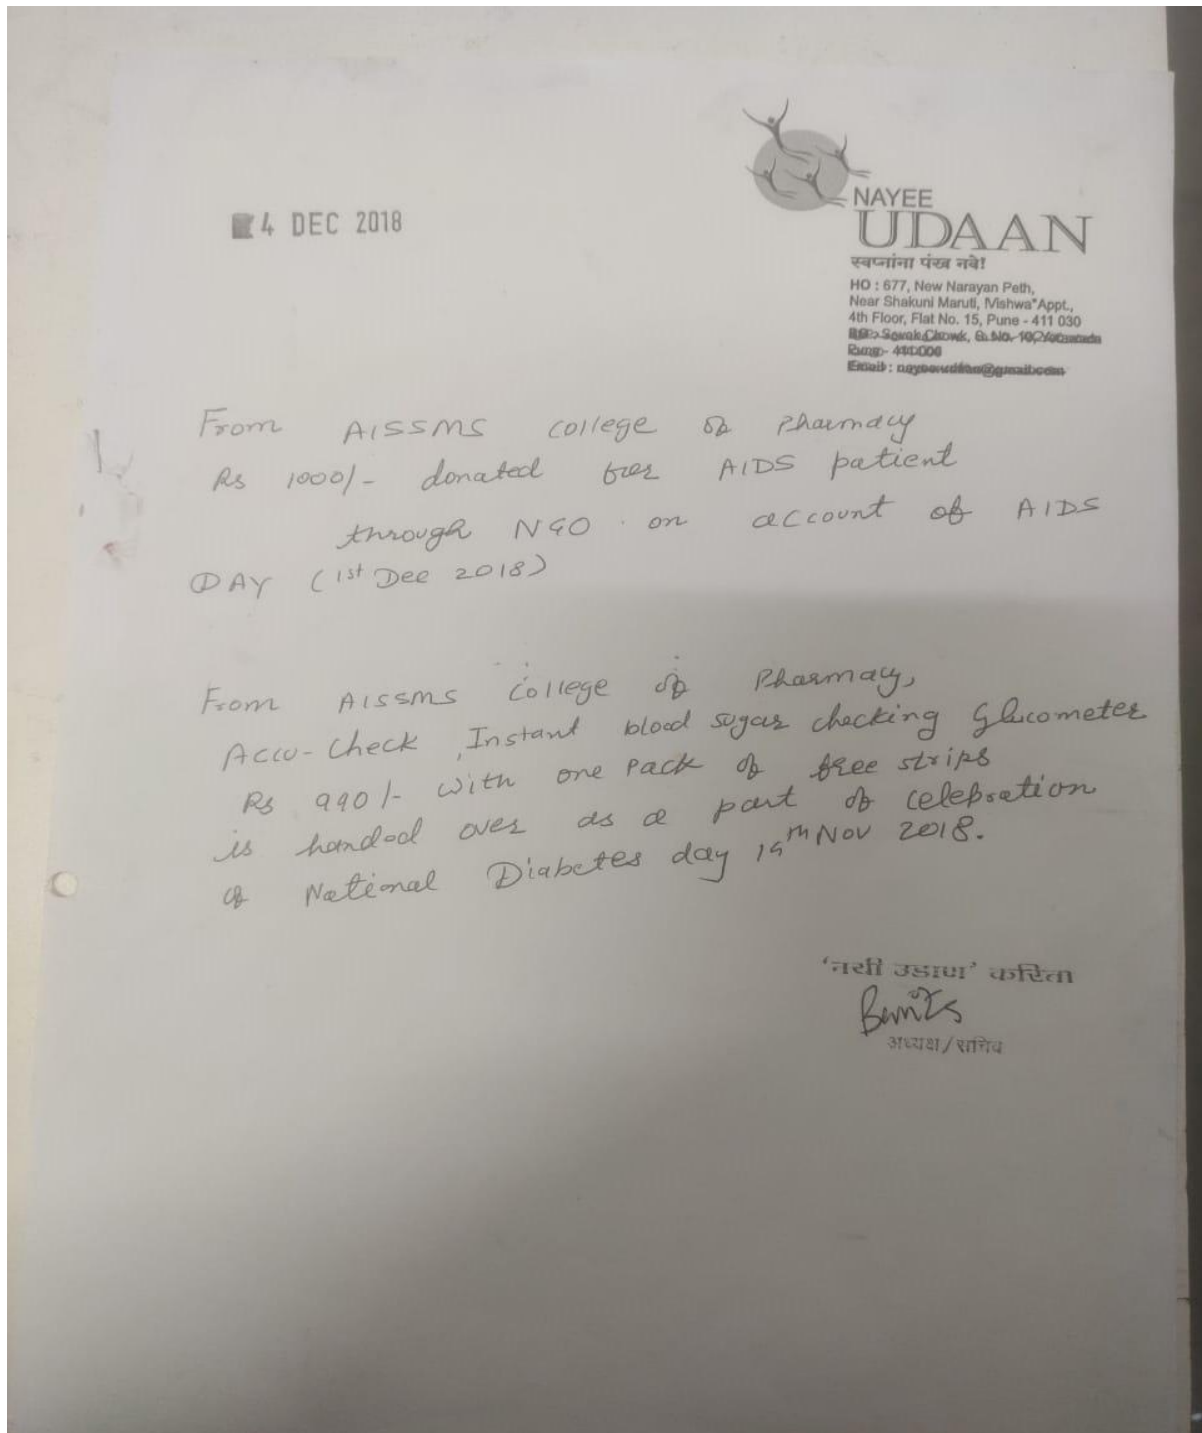 4 DEC 2018
NAYEE
UDAAN
स्वप्नांना पंख नवे!
HO : 677, New Narayan Peth,
Near Shakuni Maruti, "Vishwa" Appt.,
4th Floor, Flat No. 15, Pune - 411 030
Chowk,
From AISSMS College of Pharmacy
Rs 1000/- donated for AIDS patient
through NGO on account of AIDS
DAY (1st Dec 2018)
From AISSMS College of Pharmacy,
Accu-Check, Instant blood sugar checking Glucometer
Rs 990/- with one pack of free strips
is handed over as a part of celebration
of National Diabetes day Nov 2018.
'नयी उडाण' करिता
अध्यक्ष/सचिव